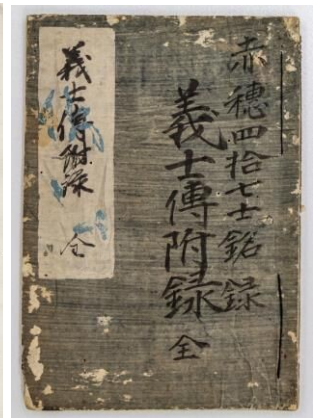 赤穗四拾七士銘録
義士傳附録 全
義士傳附録 全